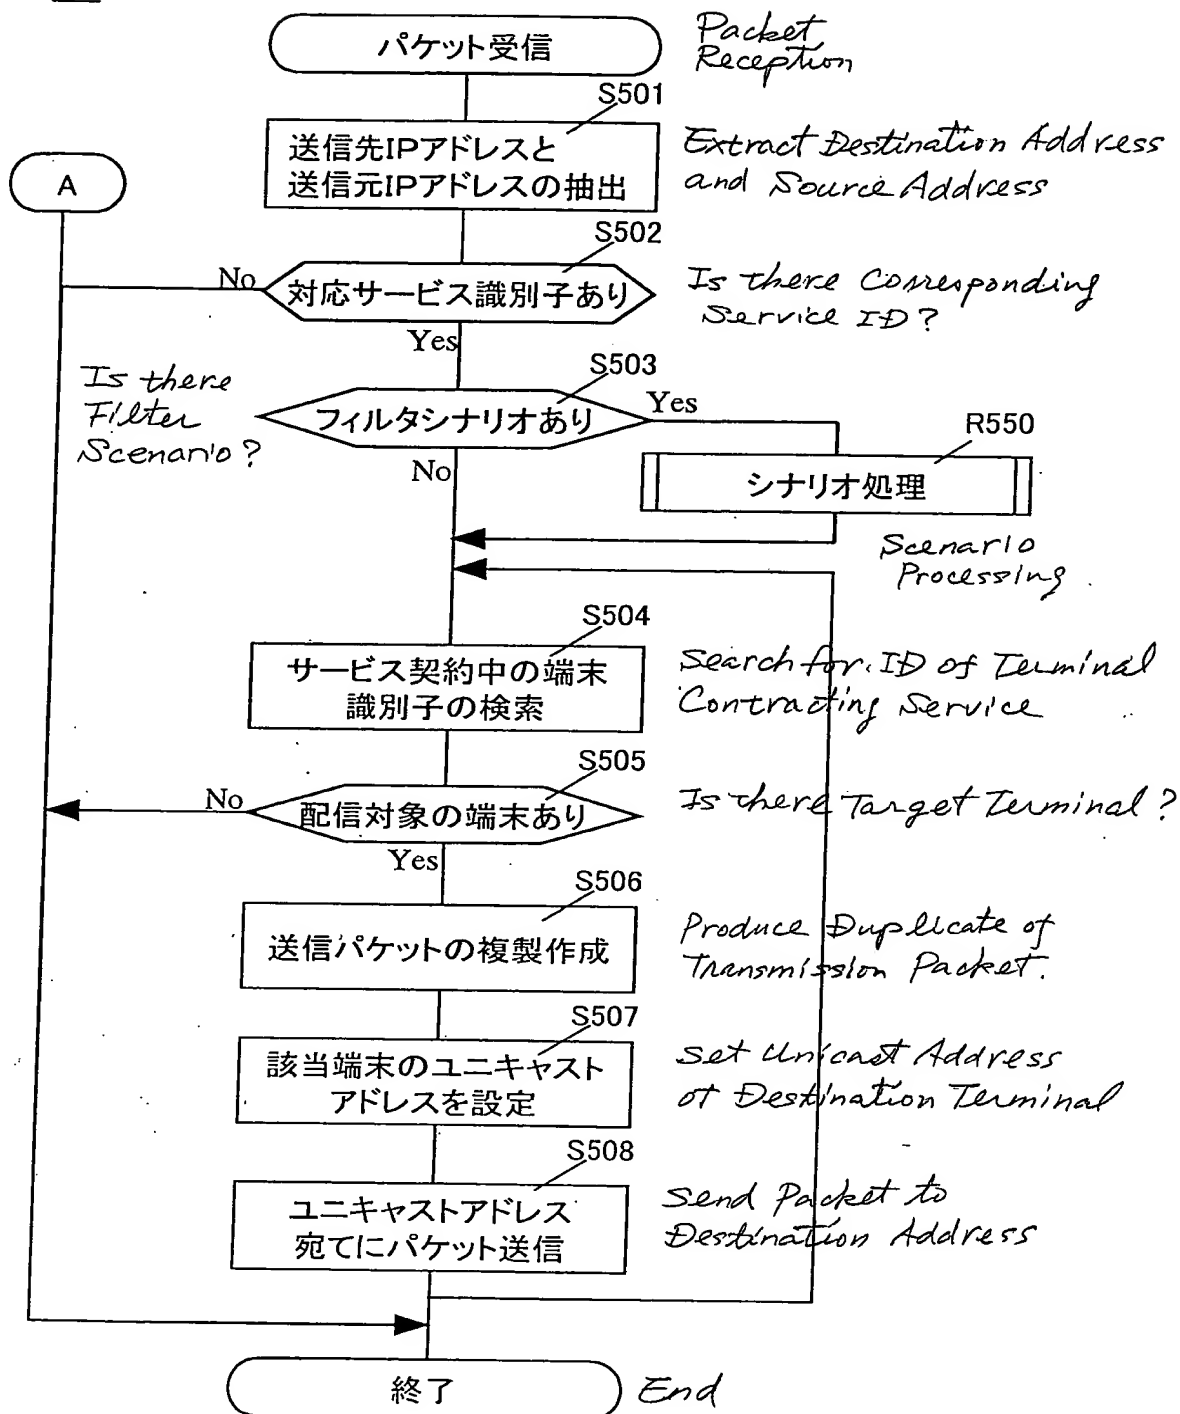 パケット受信
Packet
Reception
S501
送信先IPアドレスと
送信元IPアドレスの抽出
Extract Destination Address
and Source Address
A
S502
No
対応サービス識別子あり
Is there Corresponding
Service ID?
Yes
S503
Is there
Filter
Scenario?
フィルタシナリオあり
Yes
No
R550
シナリオ処理
Scenario
Processing
S504
サービス契約中の端末
識別子の検索
Search for ID of Terminal
Contracting Service
S505
No
配信対象の端末あり
Is there Target Terminal?
Yes
S506
送信パケットの複製作成
Produce Duplicate of
Transmission Packet.
S507
該当端末のユニキャスト
アドレスを設定
Set Unicast Address
of Destination Terminal
S508
ユニキャストアドレス
宛てにパケット送信
Send Packet to
Destination Address
終了
End